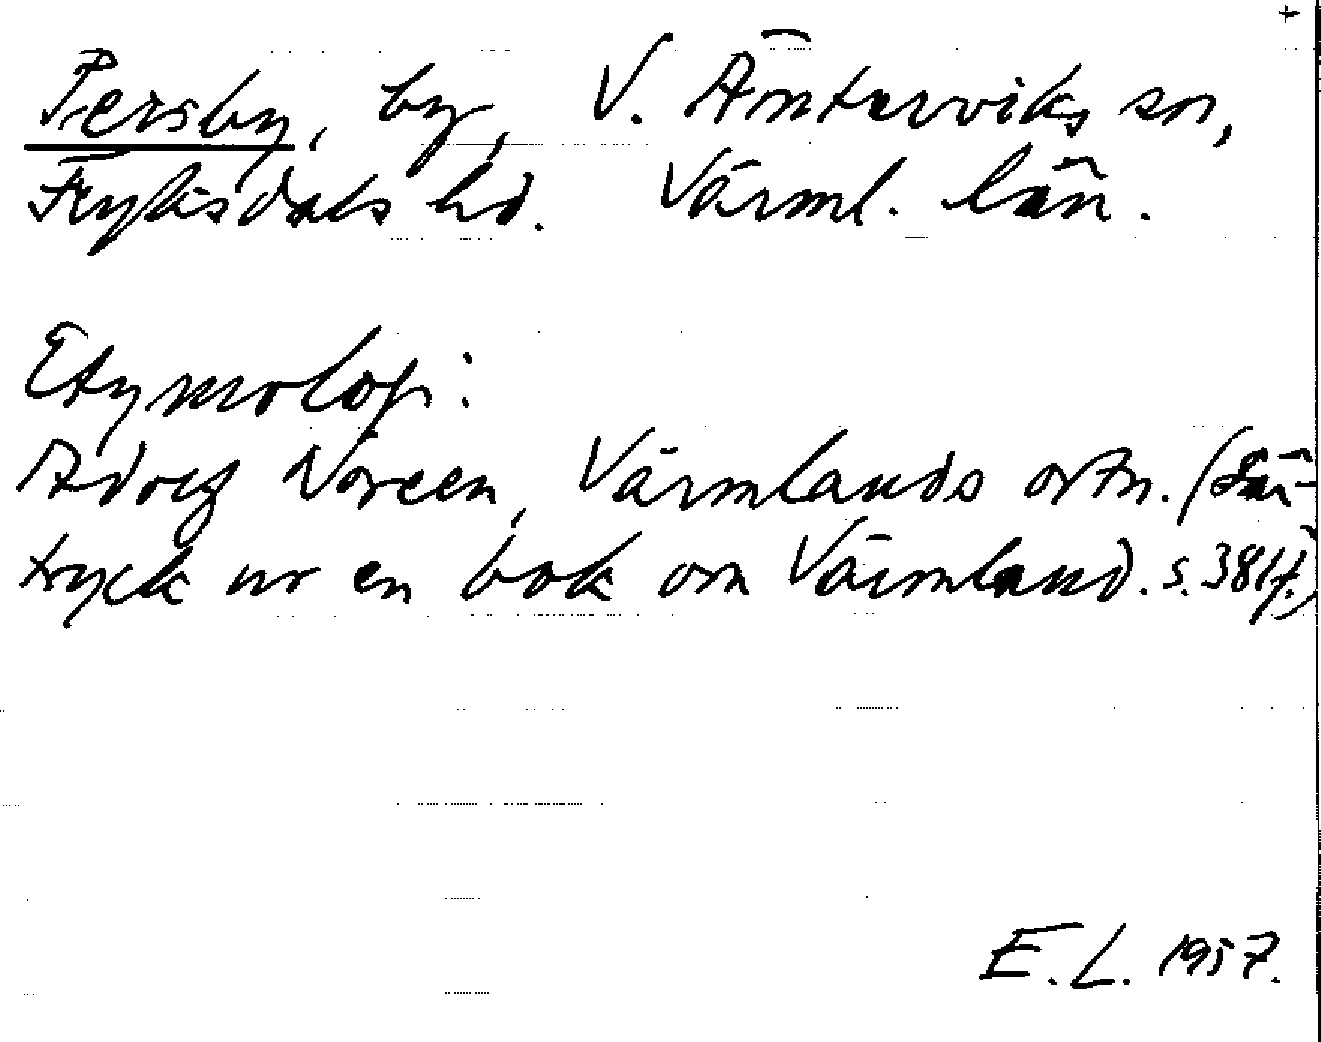 +
Persby, by, V. Ämterviks sn,
Fryksdals hd. Värml. län.
Etymologi:
Adolf Noreen, Värmlands ortn. (Sär-
tryck ur en bok om Värmland. s. 381f.)
E.L. 1957.